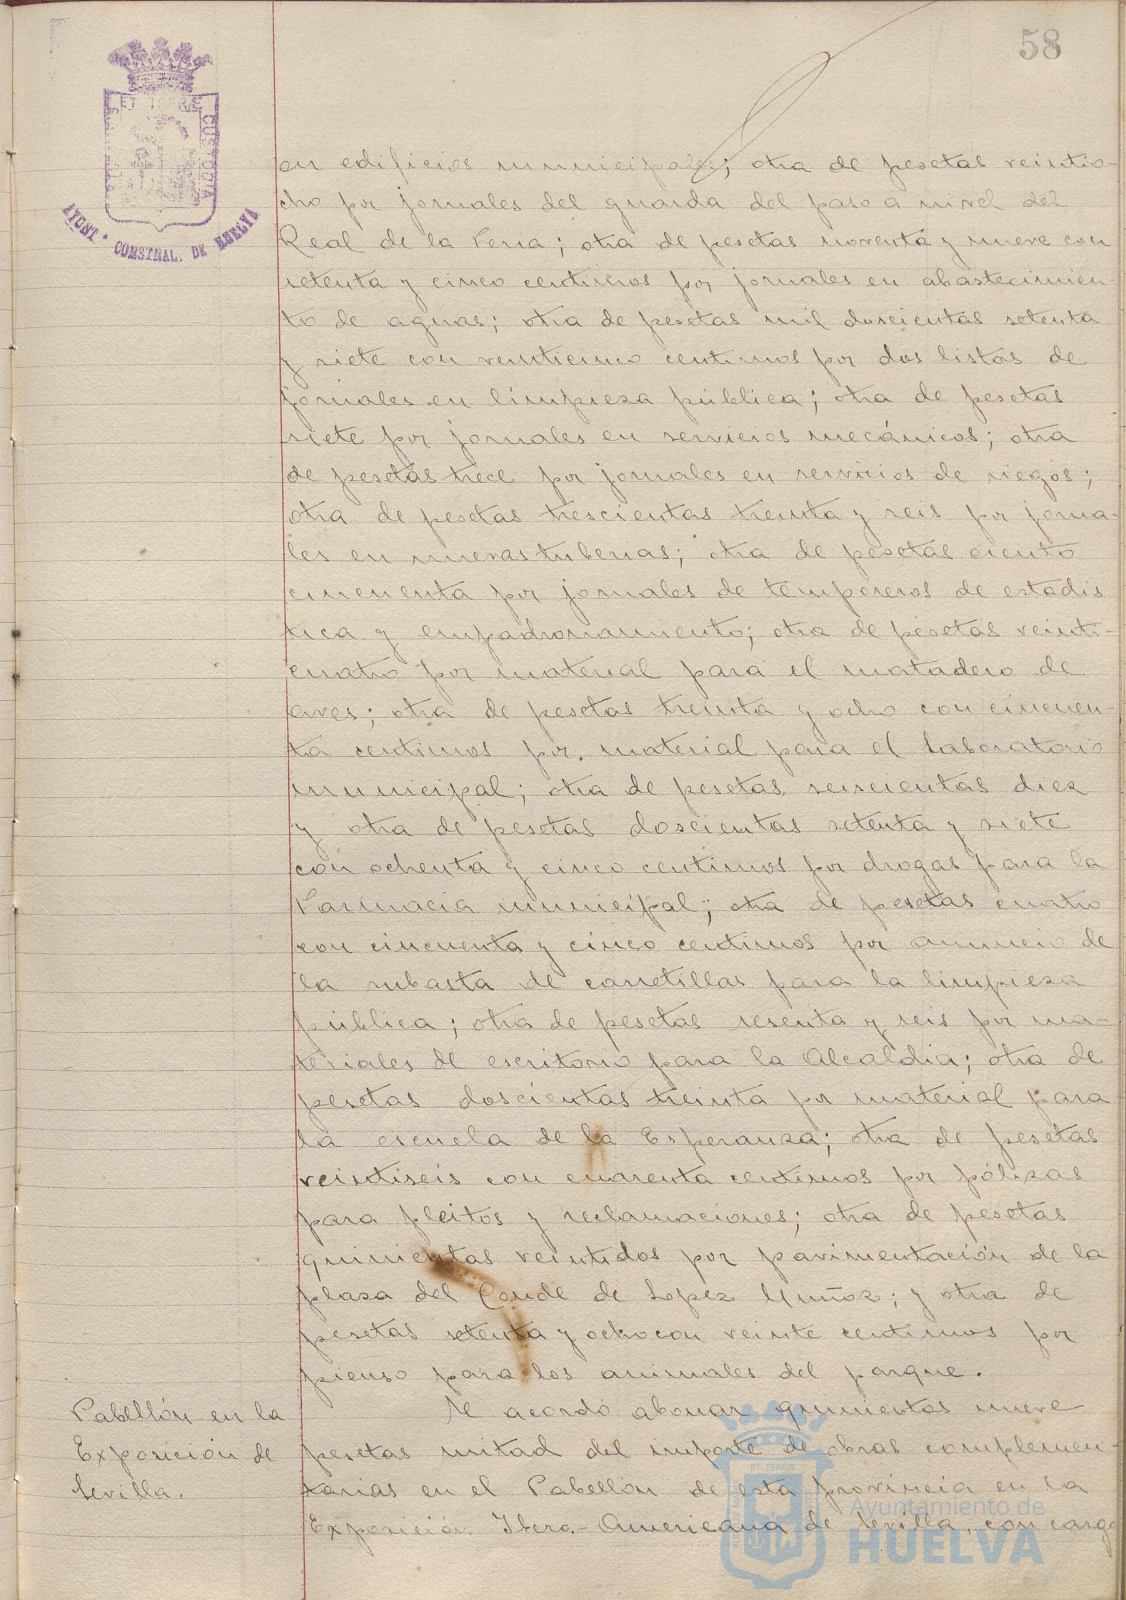 58
ET TERRE CUSTODIA
AYUNT. COMSTNAL. DE HUELVA
en edificios municipales; otra de pesetas veintio-
cho por jornales del guarda del paso a nivel del
Real de la Feria; otra de pesetas noventa y nueve con
setenta y cinco centimos por jornales en abastecimien-
to de aguas; otra de pesetas mil doscientas setenta
y siete con veinticinco centimos por dos listas de
jornales en limpieza pública; otra de pesetas
siete por jornales en servicios mecánicos; otra
de pesetas trece por jornales en servicios de riegos;
otra de pesetas trescientas treinta y seis por jorna-
les en nuevas tuberias; otra de pesetas ciento
cincuenta por jornales de tempereros de estadis
tica y empadronamiento; otra de pesetas veinti-
cuatro por material para el matadero de
aves; otra de pesetas treinta y ocho con cincuen-
ta centimos por material para el laboratorio
municipal; otra de pesetas seiscientas diez
y otra de pesetas doscientas setenta y siete
con ochenta y cinco centimos por drogas para la
Farmacia municipal; otra de pesetas cuatro
con cincuenta y cinco centimos por anuncio de
la subasta de carretillas para la limpieza
pública; otra de pesetas sesenta y seis por ma-
teriales de escritorio para la Alcaldia; otra de
pesetas doscientas treinta por material para
la escuela de la Esperanza; otra de pesetas
veintiseis con cuarenta centimos por pólizas
para pleitos y reclamaciones; otra de pesetas
quinientas veintidos por pavimentación de la
plaza del Conde de Lopez Muñoz; y otra de
pesetas setenta y ocho con veinte centimos por
pienso para los animales del parque.
Pabellón en la
Exposición de
Sevilla.
Se acordó abonar quinientas nueve
pesetas mitad del importe de obras complemen-
tarias en el Pabellón de esta provincia en la
Exposición Ibero-Americana de Sevilla, con cargo
Ayuntamiento de
HUELVA